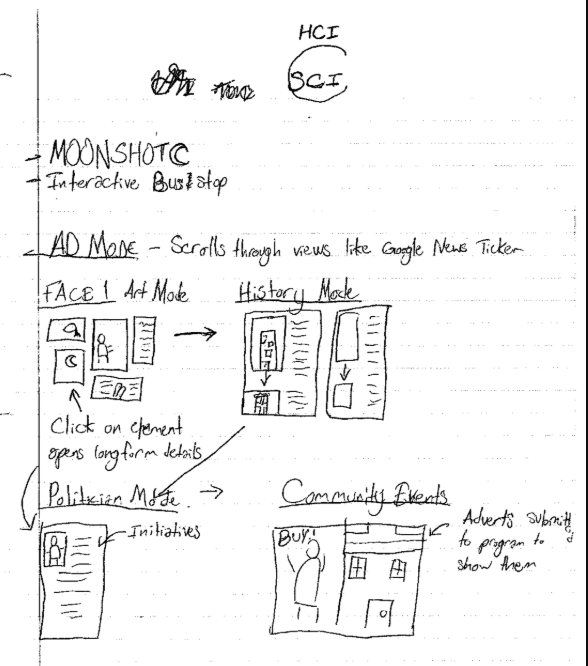 HCI
SCI
- MOONSHOT
- Interactive Bus stop
AD MODE - Scrolls through views like Google News Ticker
FACE 1 Art Mode
History Mode
Click on element
opens longform details
Politician Mode
Community Events
Initiatives
Buy!
Adverts submitted
to program to
show them